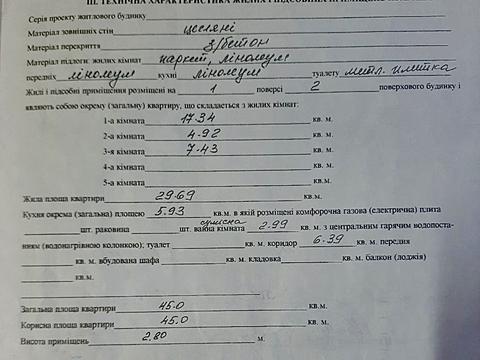 III. ТЕХНІЧНА ХАРАКТЕРИСТИКА ЖИЛИХ І ПІДСОБНИХ ПРИМІЩЕНЬ
Серія проекту житлового будинку
Матеріал зовнішніх стін цегляні
Матеріал перекриття з/бетон
Матеріал підлоги: жилих кімнат паркет, лінолеум
передніх лінолеум кухні лінолеум туалету метл. плитка
Жилі і підсобні приміщення розміщені на 1 поверсі 2 поверхового будинку і
являють собою окрему (загальну) квартиру, що складається з жилих кімнат:
1-а кімната 17.34 кв. м.
2-а кімната 4.92 кв. м.
3-я кімната 7.43 кв. м.
4-а кімната кв. м.
5-а кімната кв. м.
Жила площа квартири 29.69 кв. м.
Кухня окрема (загальна) площею 5.93 кв.м. в якій розміщені комфорочна газова (електрична) плита
шт. раковина шт. ванна кімната сумісна 2.99 кв. м. з центральним гарячим водопоста-
нням (водонагрівною колонкою); туалет кв. м. коридор 6.39 кв. м. передня
кв. м. вбудована шафа кв. м. кладовка кв. м. балкон (лоджія)
кв. м.
Загальна площа квартири 45.0 кв.м.
Корисна площа квартири 45.0 кв.м.
Висота приміщень 2.80 м.